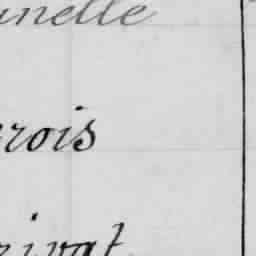 unelle
rois
rivat